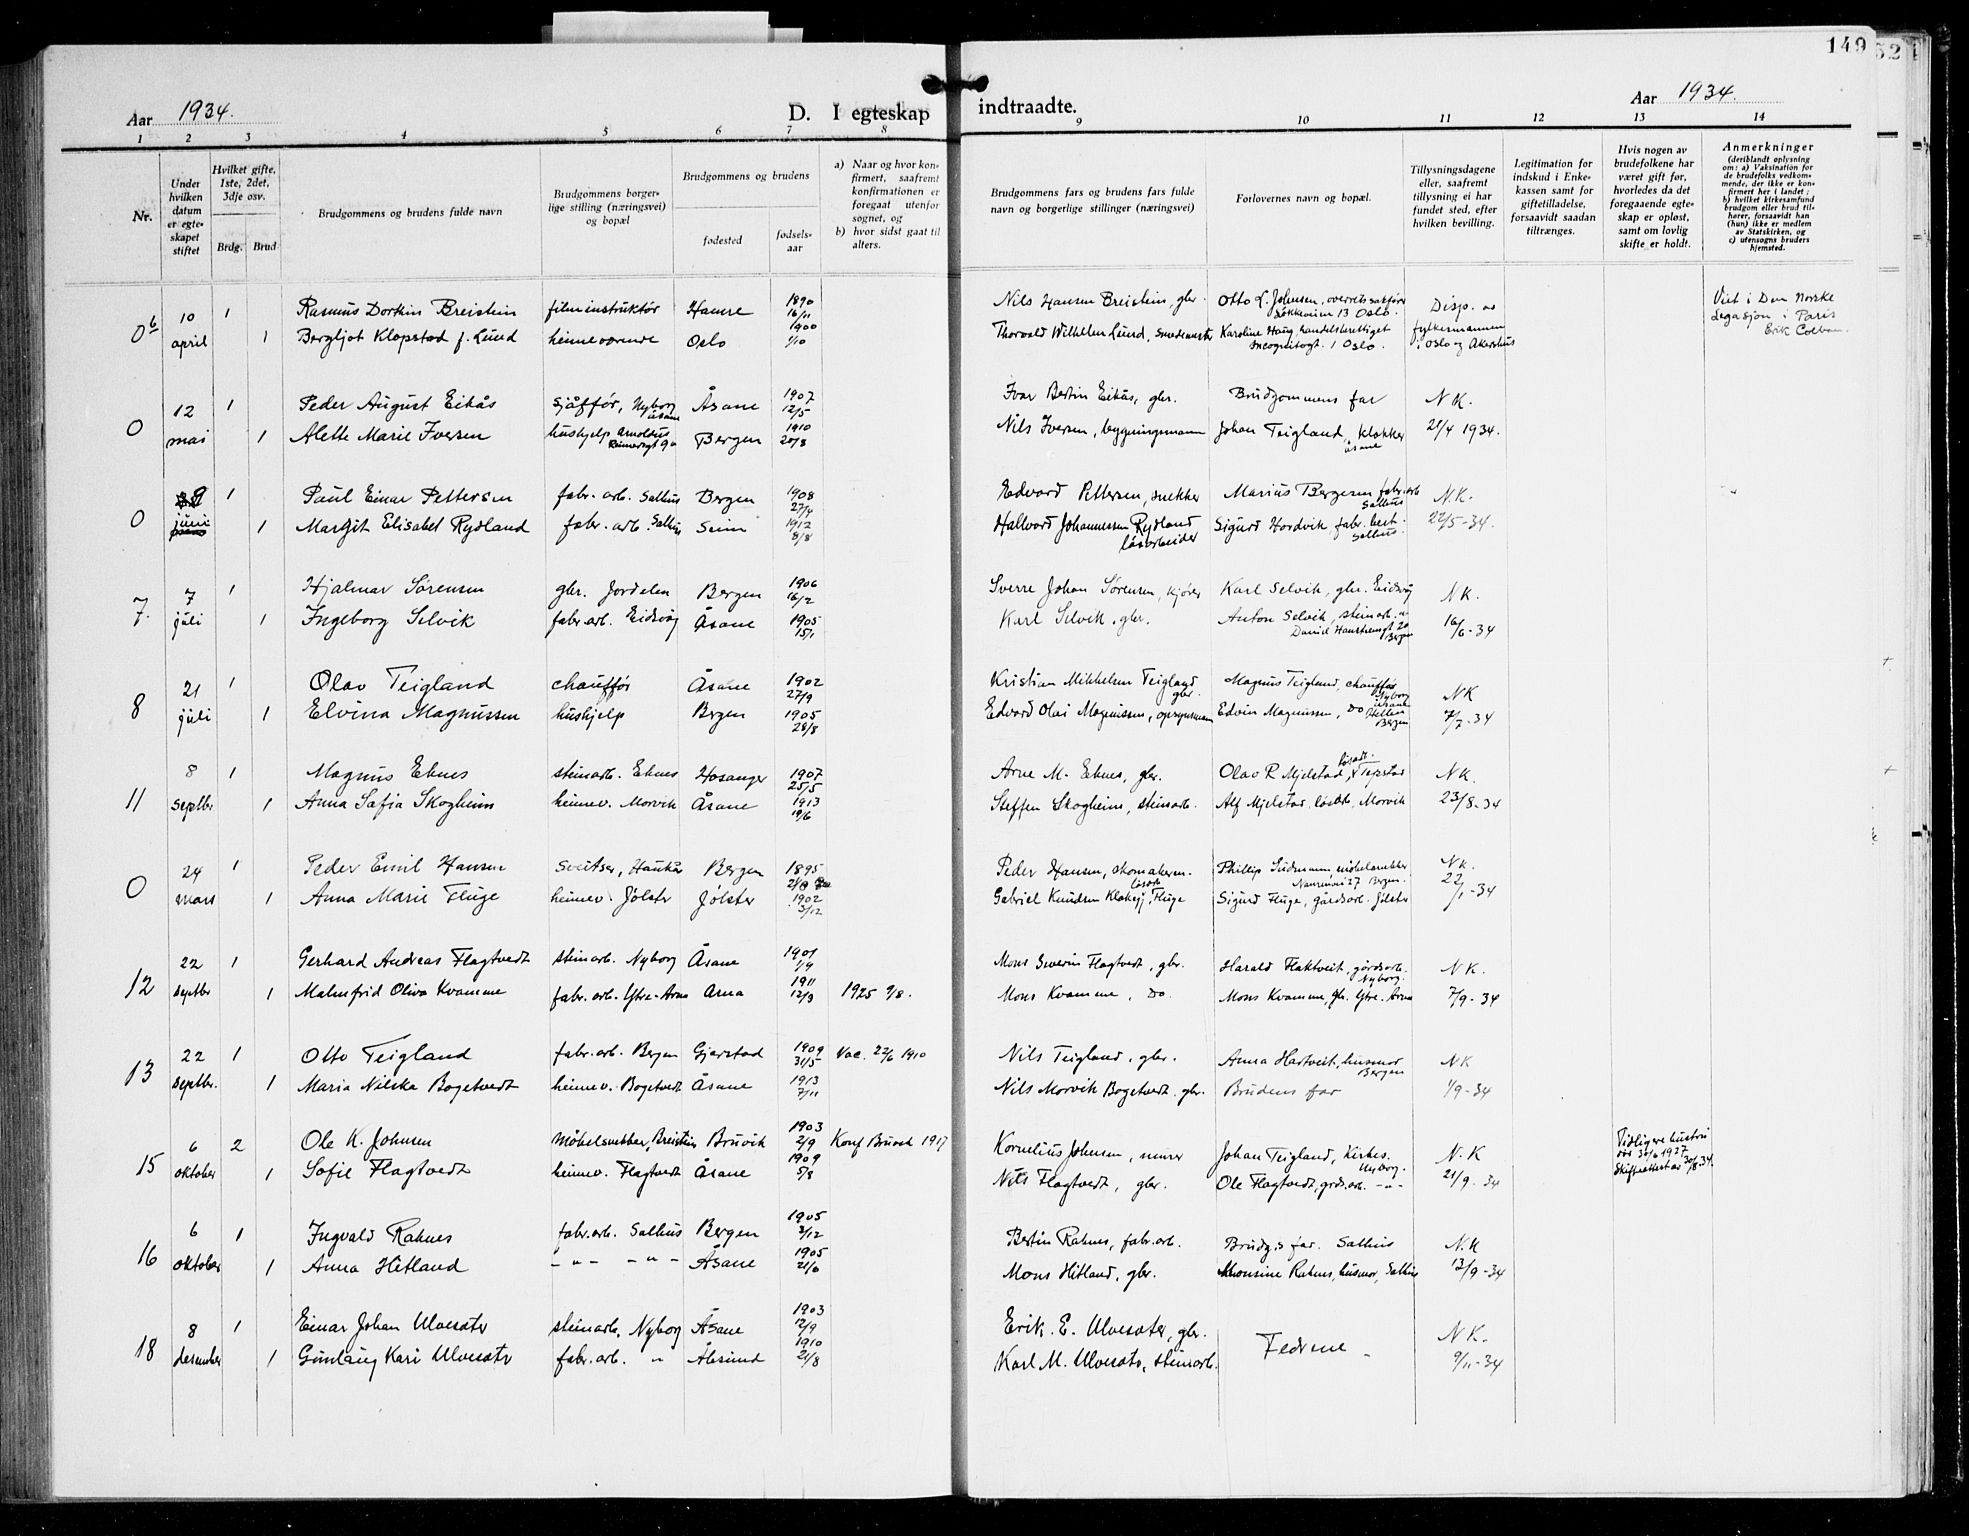 149
52
Aar 1934.
D. I egteskap indtraadte.
Aar 1934.
1 2 3 4 5 6 7 8 9 10 11 12 13 14
Nr.
Under
hvilken
datum
er egte-
skapet
stiftet
Hvilket gifte,
1ste, 2det,
3dje osv.
Brdg. Brud
Brudgommens og brudens fulde navn
Brudgommens borger-
lige stilling (næringsvei)
og bopæl
Brudgommens og brudens
fødested
fødsels-
aar
a) Naar og hvor kon-
firmert, saafremt
konfirmationen er
foregaat utenfor
sognet, og
b) hvor sidst gaat til
alters.
Brudgommens fars og brudens fars fulde
navn og borgerlige stillinger (næringsvei)
Forlovernes navn og bopæl.
Tillysningsdagene
eller, saafremt
tillysning ei har
fundet sted, efter
hvilken bevilling.
Legitimation for
indskud i Enke-
kassen samt for
giftetilladelse,
forsaavidt saadan
tiltrænges.
Hvis nogen av
brudefolkene har
været gift før,
hvorledes da det
foregaaende egte-
skap er opløst,
samt om lovlig
skifte er holdt.
Anmerkninger
(deriblandt oplysning
om: a) Vaksination for
de brudefolks vedkom-
mende, der ikke er kon-
firmert her i landet;
b) hvilket kirkesamfund
brudgom eller brud til-
hører, forsaavidt han
(hun) ikke er medlem
av Statskirken, og
c) utensogns bruders
hjemsted.
10 1 Rasmus Dortin Breistein filminstruktør Hamre 1890 16/11 Nils Hansen Breistein, gbr. Otto L. Johnsen, overretssakfører Oslo. Disp. av Viet i Den Norske
0b april 1 Borgljot Klopstad f. Lund heimeværende Oslo 1900 1/10 Thorvald Wilhelm Lund, Karoline Haug handelsberettiget Incognitogt. 1 Oslo. fylkesmannen i Oslo og Akershus Legasjon i Paris
12 1 Peder August Eikås sjåffør, Nyborg Åsane Åsane 1907 12/5 Ivar Bertin Eikås, gbr. Brudgommens far N K.
0 mai 1 Alette Marie Iversen hushjelp Bergen 1910 20/8 Nils Iversen, bygningsmann Johan Teigland, klokker Åsane 21/4 1934.
9 1 Paul Einar Pettersen fabr. arb. Salhus Bergen 1908 27/4 Edvard Pettersen, snekker Marius Bergesen fabr. arb Salhus N.K.
0 juni 1 Margit Elisabet Rydland fabr. arb. Salhus Seim 1912 8/8 Hallvard Johannessen Rydland løsarbeider Sigurd Hordvik fabr. best. Salhus. 22/5-34.
7 1 Hjalmar Sørensen gbr. Jordalen Bergen 1906 16/2 Sverre Johan Sørensen, kjører Karl Selvik, gbr. Eidsvåg N K.
7. juli 1 Ingeborg Selvik fabr. arb. Eidsvåg Åsane 1905 15/1 Karl Selvik, gbr. Anton Selvik, steinarb. Bergen 16/6-34
21 1 Olav Teigland chauffør Åsane 1902 27/9 Kristian Mikkelsen Teigland gbr. Magnus Teigland, chauffør Nyborg Åsane N K
8 juli 1 Elvina Magnussen hushjelp Bergen 1905 28/8 Edvard Olai Magnussen, Edvin Magnussen, Do Bergen 7/7-34
8 1 Magnus Eknes steinarb. Eknes Hosanger 1907 25/5 Arne M. Eknes, gbr. Olav R Mjelstad, løsarb. N K.
11 septbr 1 Anna Sofia Skogheim heimev. Morvik Åsane 1913 19/6 Steffen Skogheim, steinarb. Alf Mjelstad, løsarb, Morvik 23/8-34
24 1 Peder Emil Hansen Haukås Bergen 1895 Peder Hansen, skomakerm. Phillip møbelsnekker Bergen. N K.
0 mars 1 Anna Marie Fluge heimev. Jølster Jølster 1902 3/12 Gabriel Knudsen Fluge Sigurd Fluge, gårdsarb. Jølster 22/1-34
22 1 Gerhard Andreas Flagtvedt steinarb. Nyborg Åsane 1901 1/9 Mons Severin Flagtvedt, gbr. Harald Flaktveit, gårdsarb. Nyborg. N K.
12 septbr 1 Malmfrid Oliva Kvamme fabr. arb. Ytre-Arna Arna 1911 12/9 1925 9/8. Mons Kvamme, Do. Mons Kvamme, gbr. Ytre-Arna 7/9-34
22 1 Otto Teigland fabr. arb. Bergen Gjerstad 1909 31/5 Vac. 22/6 1910 Nils Teigland, gbr. Anna Hartveit, husmor Bergen N K
13 septbr. 1 Maria Nilska Bogetvedt heimev. Bogetvedt Åsane 1913 7/11 Nils Morvik Bogetvedt, gbr. Brudens far 1/9-34
6 2 Ole K. Johnsen Møbelsnekker, Breistein Bruvik 1903 2/9 Konf Bruvik 1917 Kornelius Johnsen, murer Johan Teigland, Kirkes. Nyborg. N. K Tidligere hustru død 30/6 1927
15 oktober 1 Sofie Flagtvedt heimev. Flagtvedt Åsane 1909 5/8 Nils Flagtvedt, gbr. Ole Flagtvedt, grdsarb. -"- 21/9-34 Skifteattest av 30/8.34.
6 1 Ingvald Raknes fabr. arb. Salhus Bergen 1905 3/12 Bertin Raknes, fabr. arb. Brudg.s far. Salhus N.K
16 oktober 1 Anna Hitland -"- -"- Åsane 1905 21/6 Mons Hitland, gbr. Raknes, husmor, Salhus 13/9-34
8 1 Einar Johan Ulvesæter steinarb. Nyborg Åsane 1903 12/9 Erik. E. Ulvesæter, gbr. Fedrene N K.
18 desember 1 Gunlaug Kari Ulvesæter fabr. arb. " Ålesund 1910 21/8 Karl M. Ulvesæter, steinarb. 9/11-34